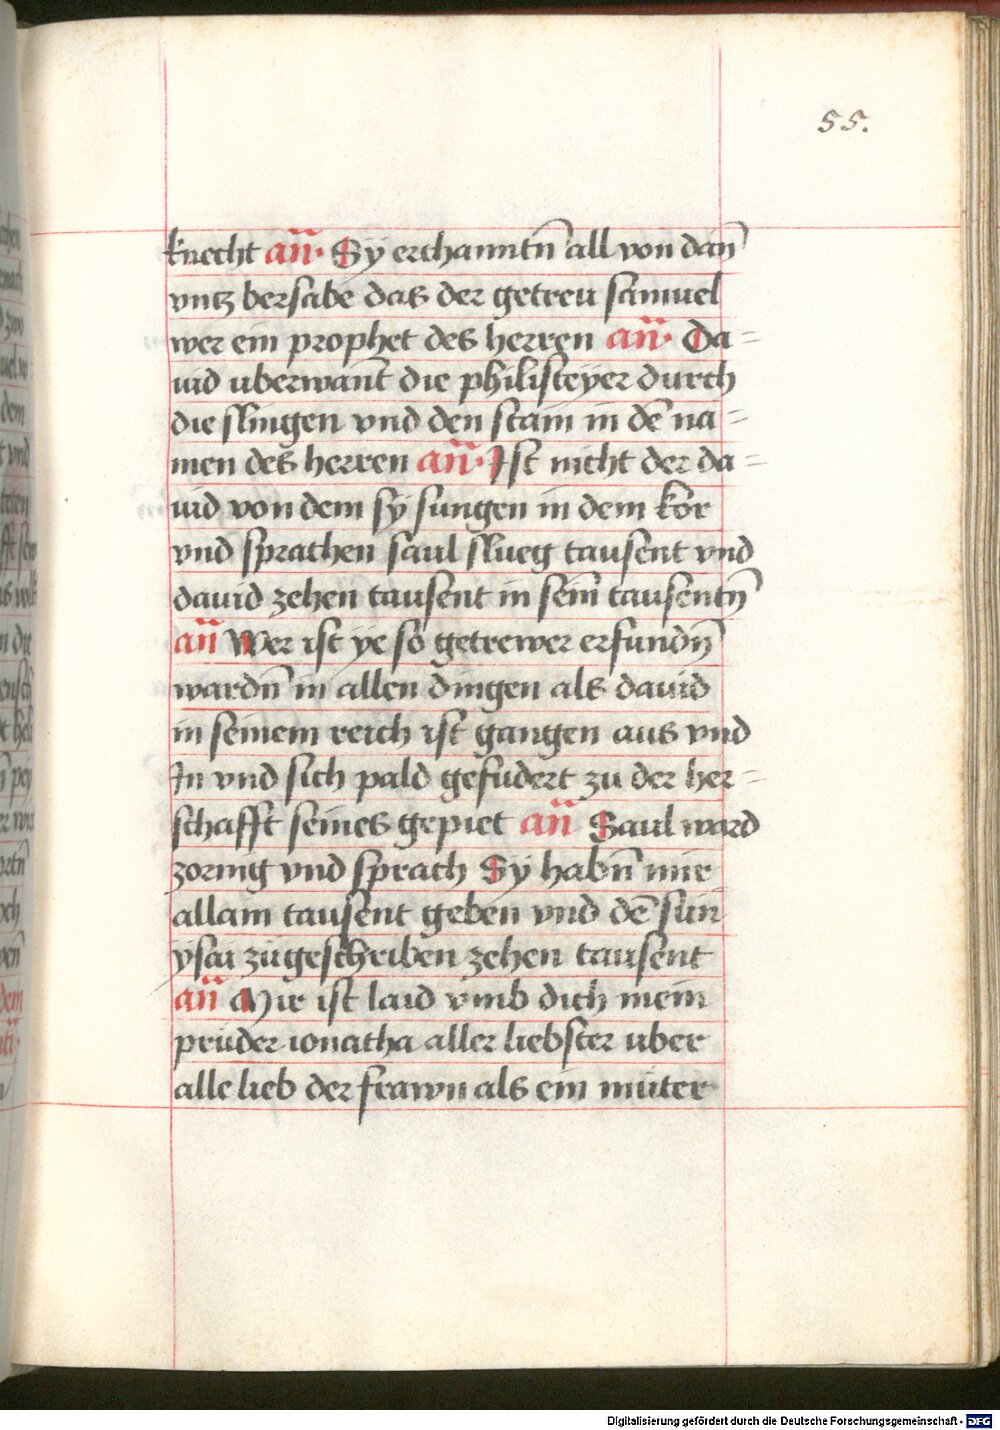 55.
knecht an̄· Sy erchanntn̄ all von dan̄
vntz bersabe das der getreu samuel
wer ein prophet des herren an̄· Da=
uid uberwant̄ die philisteyer durch
die slingen vnd den stain in dē na=
men des herren an̄· Ist nicht der da=
uid von dem sy sungen in dem kor
vnd sprachen saul slueg tausent vnd
dauid zehen tausent in sein̄ tausentn̄
an̄ Wer ist ye so getrewer erfundn̄
wardn̄ in allen dingen als dauid
in seinem reich ist gangen aus vnd
In vnd sich pald gefudert zu der her=
schafft seines gepiet an̄ Saul ward
zornig vnd sprach Sy habn̄ mir
allain tausent geben vnd dē sun
ysai zugeschriben zehen tausent
an̄ Mir ist laid vmb dich mein
pruder ionatha aller liebster uber
alle lieb der frawn als ein muter
Digitalisierung gefördert durch die Deutsche Forschungsgemeinschaft - DFG